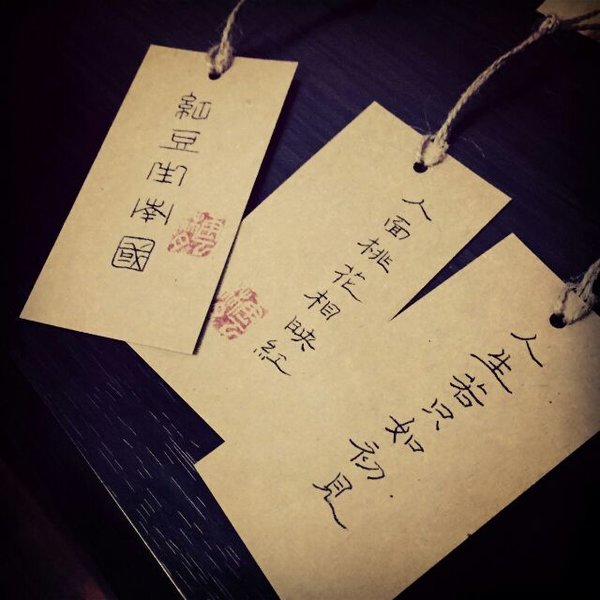 紅豆生南國
人面桃花相映紅
人生若只如初見